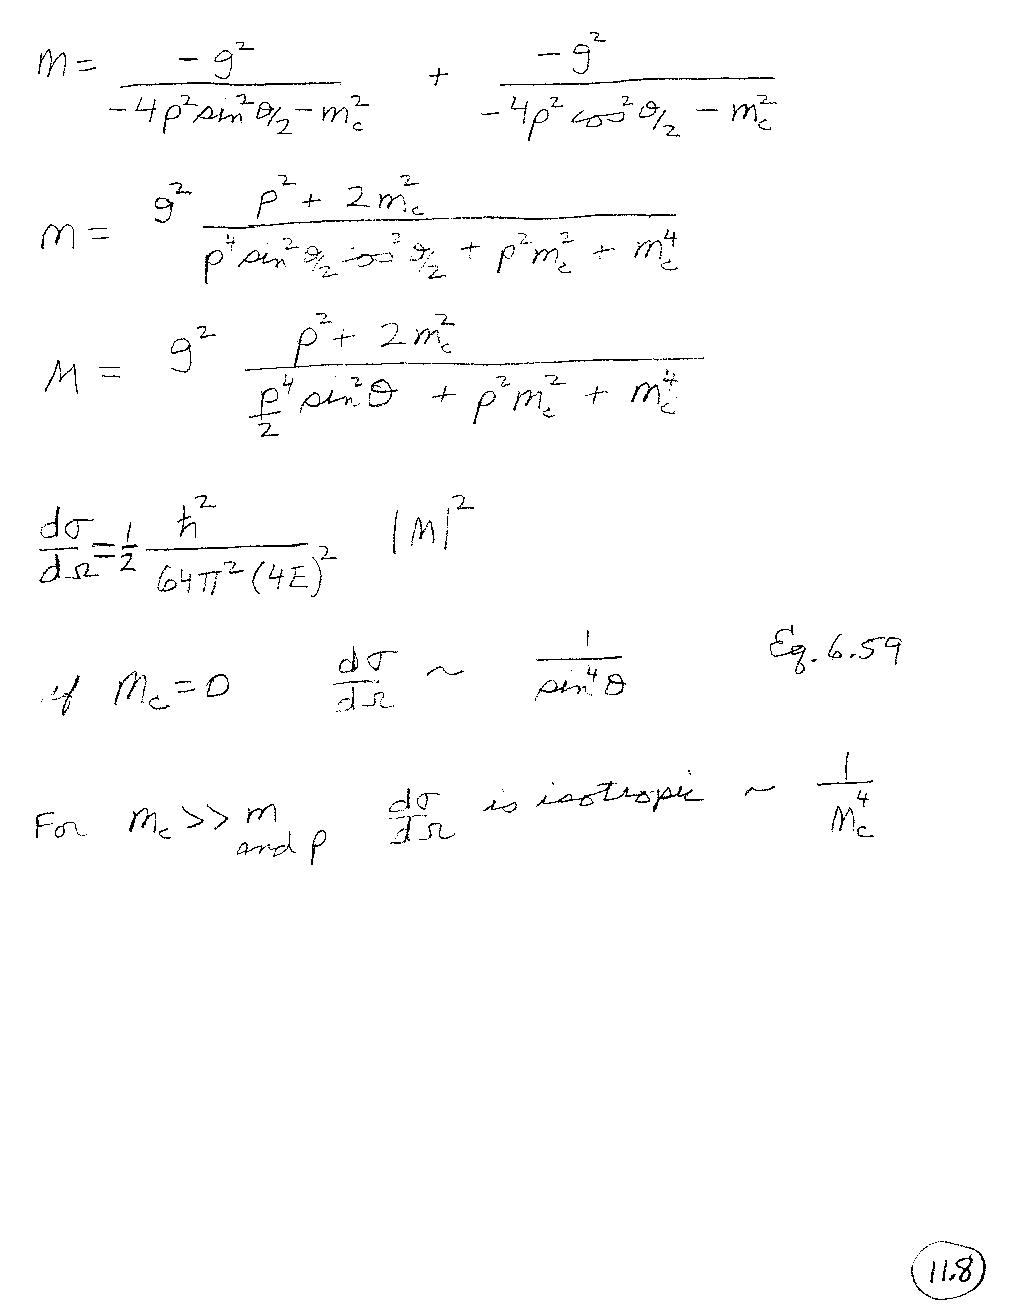 m = -g² / (-4p² sin² θ/2 - m_c²) + -g² / (-4p² cos² θ/2 - m_c²)
m = g² (p² + 2m_c²) / (p⁴ sin² θ/2 cos² θ/2 + p² m_c² + m_c⁴)
M = g² (p² + 2m_c²) / (p⁴/2 sin² θ + p² m_c² + m_c⁴)
dσ/dΩ = 1/2 ħ² / (64π² (4E)²) |M|²
if m_c = 0 dσ/dΩ ~ 1/sin⁴ θ Eq. 6.59
For m_c >> m and p dσ/dΩ is isotropic ~ 1/M_c⁴
11.8